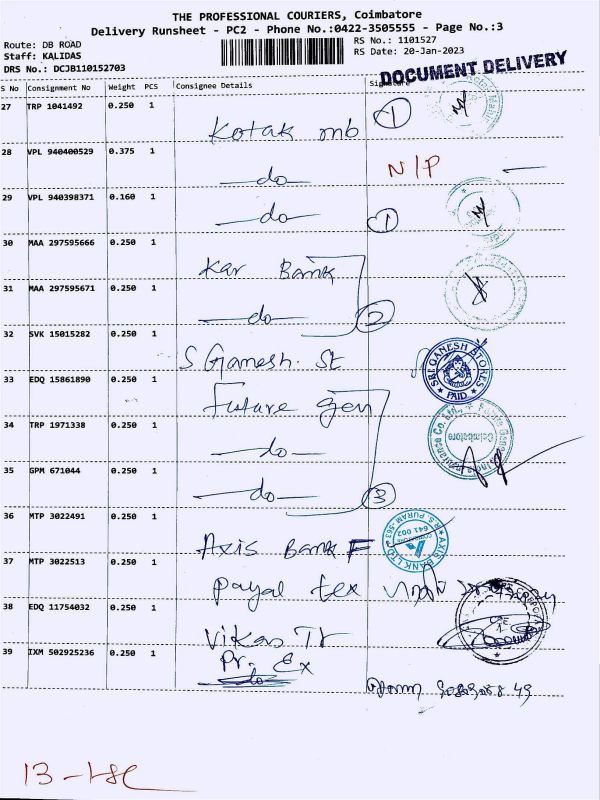 THE PROFESSIONAL COURIERS, Coimbatore
Delivery Runsheet - PC2 - Phone No.:0422-3505555 - Page No.:3
Route: DB ROAD
RS No.: 1101527
Staff: KALIDAS
RS Date: 20-Jan-2023
DRS No.: DCJB110152703
DOCUMENT DELIVERY
S No Consignment No Weight PCS Consignee Details
27 TRP 1041492 0.250 1 Kotak mb 1
28 VPL 940400529 0.375 1 do N/P
29 VPL 940398371 0.160 1 do 1
30 MAA 297595666 0.250 1 Kar Bank
31 MAA 297595671 0.250 1 do 2
32 SVK 15015282 0.250 1 S Ganesh. St
SRI GANESH STORES
PAID
33 EDQ 15861890 0.250 1 Future Gen
34 TRP 1971338 0.250 1 do
Coimbatore
35 GPM 671044 0.250 1 do 3
36 MTP 3022491 0.250 1 Axis Bank F
AXIS BANK LTD
R.S. PURAM-563
641 002
37 MTP 3022513 0.250 1 payal tex
38 EDQ 11754032 0.250 1 Vikas Tr
39 IXM 502925236 0.250 1 Pr. Ex
do